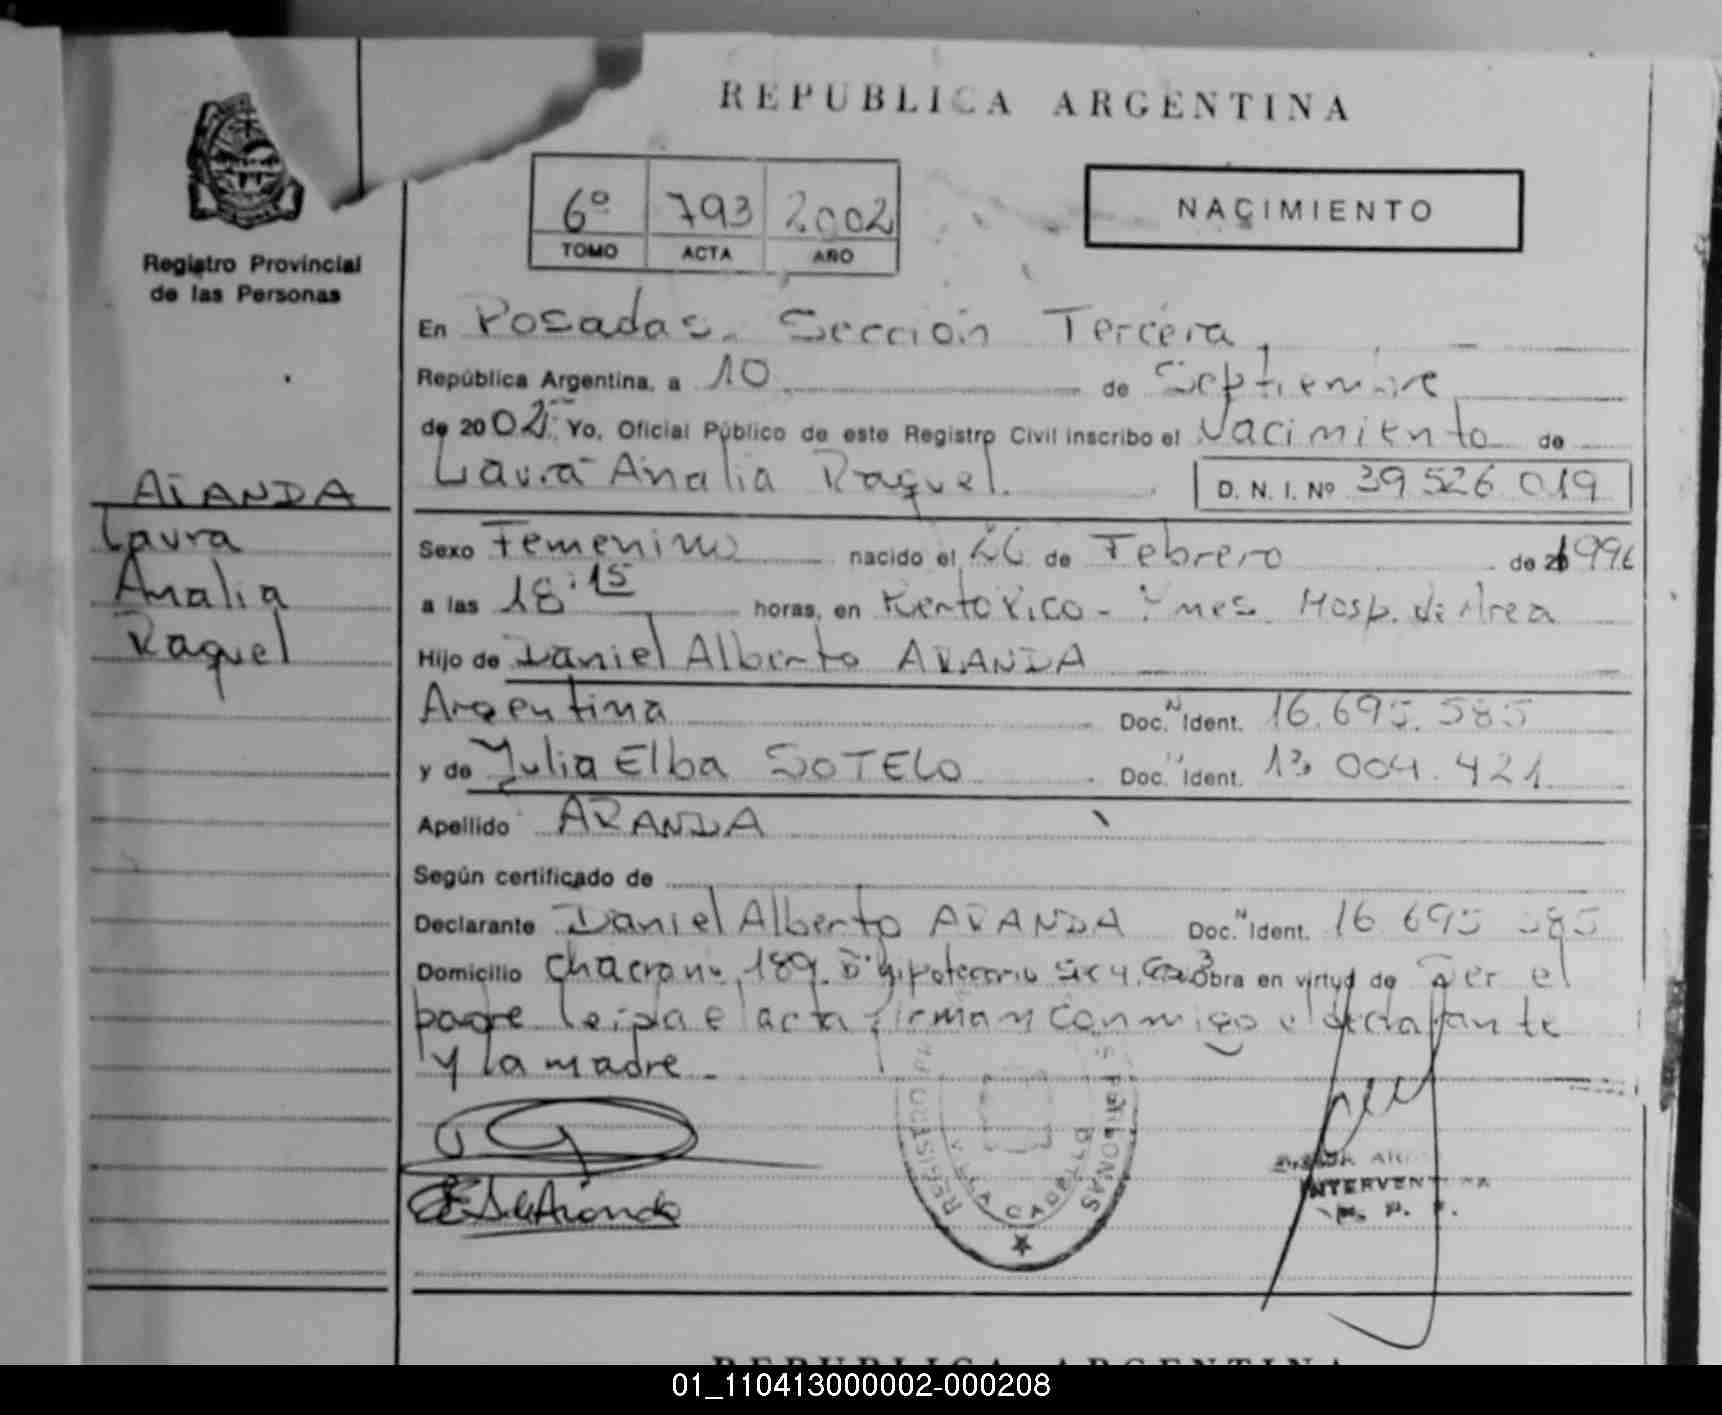 REPUBLICA ARGENTINA
6º 793 2002
TOMO ACTA AÑO
NACIMIENTO
Registro Provincial
de las Personas
En Posadas. Sección Tercera
República Argentina, a 10 de Septiembre
de 2002 Yo, Oficial Público de este Registro Civil inscribo el Nacimiento de
Laura Analia Raquel. D. N. I. Nº 39.526.019
ARANDA
Laura
Analia
Raquel
Sexo Femenino nacido el 26 de Febrero de 1996
a las 18:15 horas, en Puerto Rico - Mnes. Hosp. de Area
Hijo de Daniel Alberto ARANDA
Argentina Doc. N Ident. 16.695.585
y de Julia Elba SOTELO Doc. Ident. 13.004.421
Apellido ARANDA
Según certificado de
Declarante Daniel Alberto ARANDA Doc. N Ident. 16 695 585
Domicilio Chacra nº 189. Bº Hipotecario Sec 4. Casa 3 Obra en virtud de ser el
padre leida el acta firman conmigo el declarante
y la madre.
E S de Aranda
INTERVENTORA
R. P. P.
REPUBLICA ARGENTINA
01_110413000002-000208